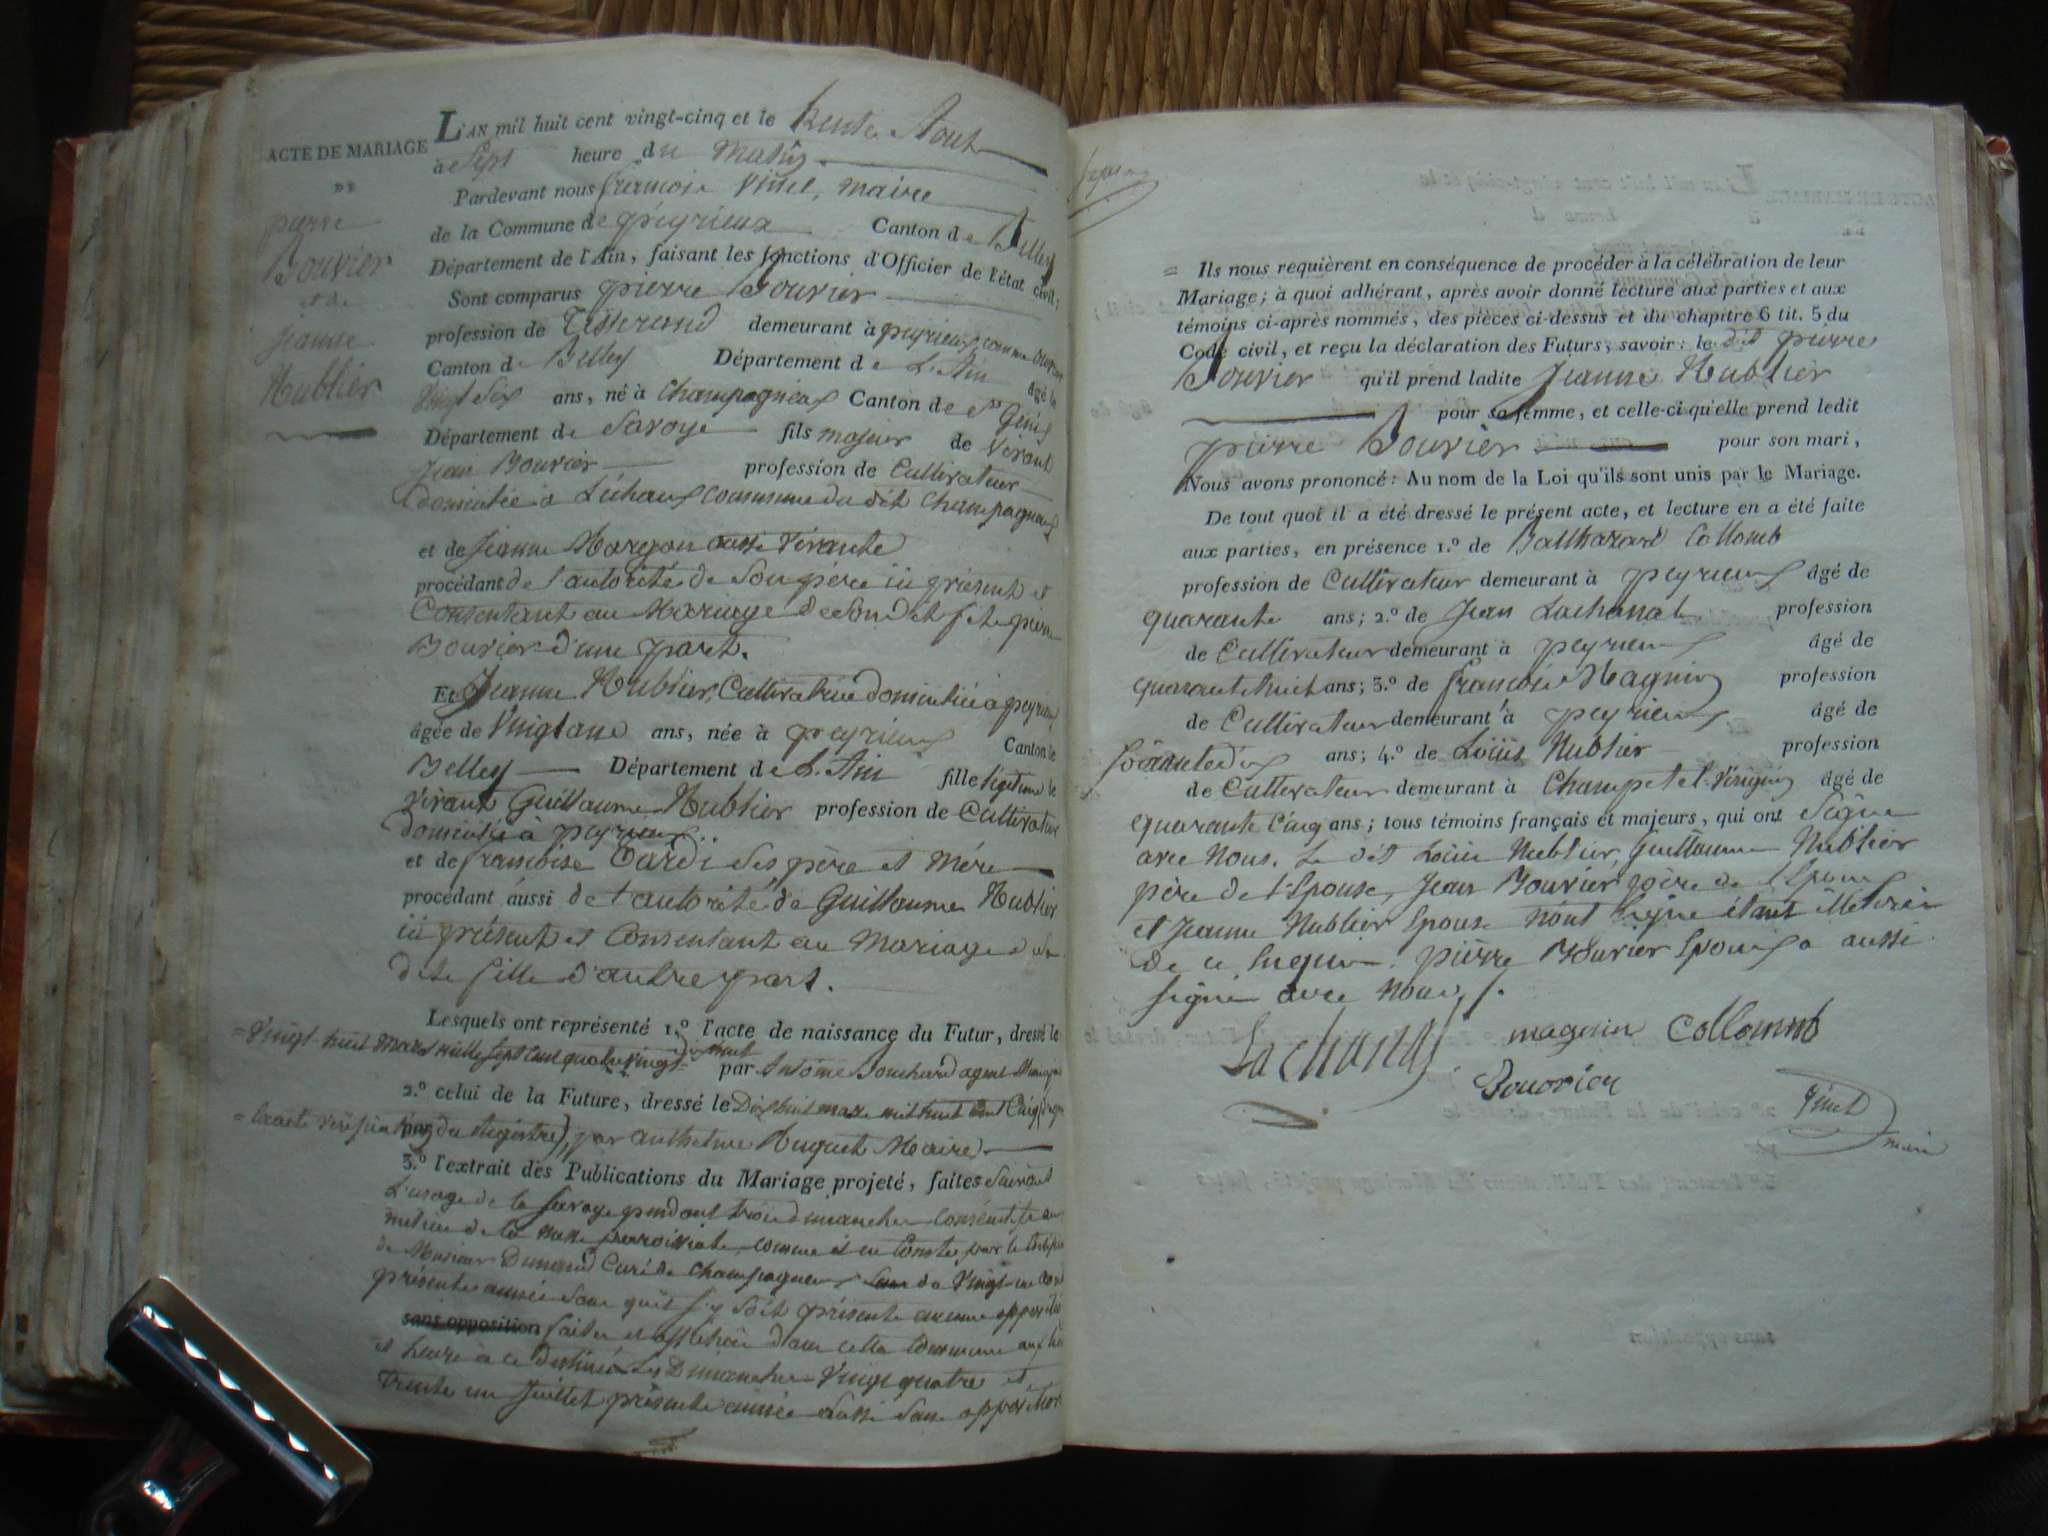 ACTE DE MARIAGE
DE
pierre
Bouvier
et de
jeanne
Hublier
L'AN mil huit cent vingt-cinq et le trente Aout
à Sept heure du Matin
Pardevant nous françois Vinet, maire
de la Commune de peÿrieux Canton de Belley
Département de l'Ain, faisant les fonctions d'Officier de l'état civil;
Sont comparus pierre Bouvier
profession de Tisserand demeurant à peyrieux comme ouvrier
Canton de Belley Département de L'Ain âgé de
Vingt Six ans, né à Champagneux Canton de St Genis
Département de Savoye fils majeur de Vivant
Jean Bouvier profession de Cultivateur
domicilié à Léchaux commune du dit Champagneux
et de Jeanne Margon aussi Vivante
procédant de l'autorité de Son père ici présent et
Consentant au Mariage de Son dit fils pierre
Bouvier d'une part.
Et Jeanne Hublier, Cultivatrice domiciliée à peyrieux
âgée de Vingt ans, née à peyrieux Canton de
Belley Département de L'Ain fille légitime de
Vivant Guillaume Hublier profession de Cultivateur
domicilié à peyrieux
et de françoise Tardi Ses père et Mère
procédant aussi de l'autorité de Guillaume Hublier
ici présent et Consentant au Mariage de Sa
dite fille d'autre part.
Lesquels ont représenté 1.º l'acte de naissance du Futur, dressé le
= Vingt huit Mars mille Sept cent quatre vingt dix neuf par Antoine Bouchard agent
2.º celui de la Future, dressé le Dix huit mars mil huit cent Cinq
= du Registre), par Anthelme Huguet Maire
3.º l'extrait des Publications du Mariage projeté, faites Suivant
L'usage de la Savoye pendant trois dimanches Consécutifs au
milieu de la Messe paroissiale, comme il en Conste par le
de Monsieur Dunand Curé de Champagneux du Vingt un Aout
présente année Sans qu'il S'y Soit présenté aucune opposition
sans opposition faites et affichées dans cette Commune aux lieu
et heure à ce destinés Les Dimanches Vingt quatre et
Trente un Juillet présente année aussi Sans opposition
= Ils nous requièrent en conséquence de procéder à la célébration de leur
Mariage; à quoi adhérant, après avoir donné lecture aux parties et aux
témoins ci-après nommés, des pièces ci-dessus et du chapitre 6 tit. 5 du
Code civil, et reçu la déclaration des Futurs, savoir: le dit pierre
Bouvier qu'il prend ladite Jeanne Hublier
pour sa femme, et celle-ci qu'elle prend ledit
pierre Bouvier pour son mari,
Nous avons prononcé: Au nom de la Loi qu'ils sont unis par le Mariage.
De tout quoi il a été dressé le présent acte, et lecture en a été faite
aux parties, en présence 1.º de Balthazard Collomb
profession de Cultivateur demeurant à peyrieux âgé de
quarante ans; 2.º de Jean Lachanal profession
de Cultivateur demeurant à peyrieux âgé de
quarante huit ans; 3.º de françois Magnin profession
de Cultivateur demeurant à peyrieux âgé de
Soixante dix ans; 4.º de Loüis Hublier profession
de Cultivateur demeurant à Champtel Virignin âgé de
quarante Cinq ans; tous témoins français et majeurs, qui ont Signé
avec Nous. Le dit Loüis Hublier, Guillaume Hublier
père de l'Epouse, Jean Bouvier père de l'Epoux
et Jeanne Hublier Epouse n'ont Signé étant illétrés
de ce Enquis. pierre Bouvier Epoux a aussi
Signé avec Nous.
Lachanal magnin Collomb
Bouvier
Vinet
maire